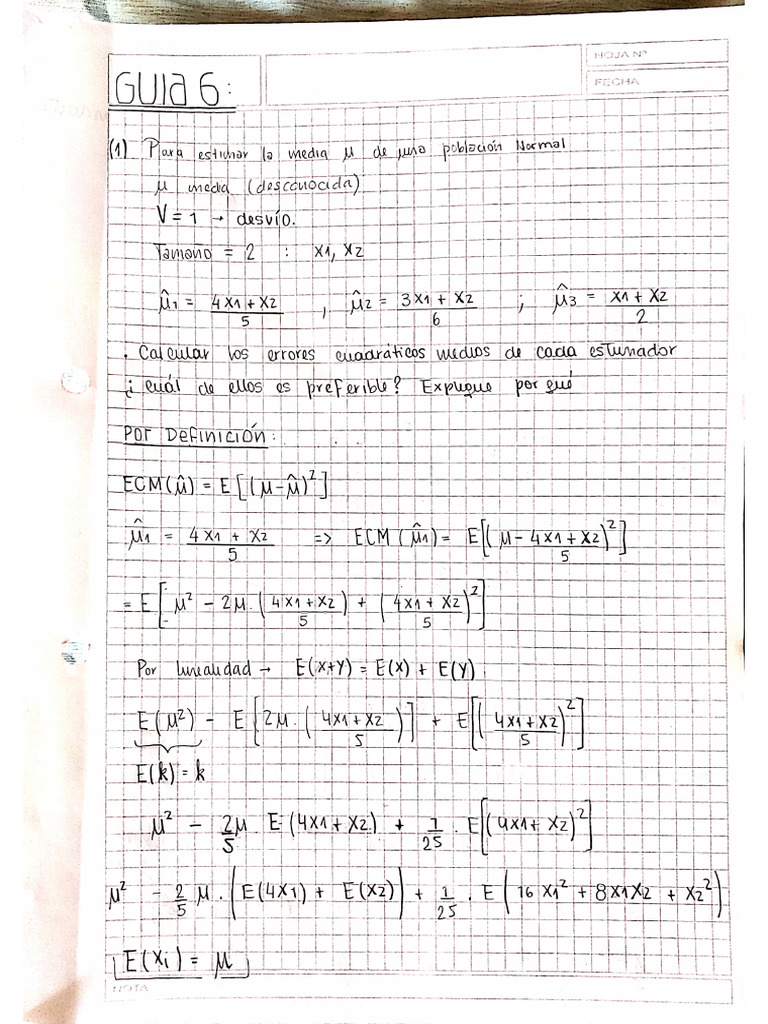 HOJA Nº
FECHA
GUIA 6:
(1) Para estimar la media μ de una población Normal
μ media (desconocida)
V = 1 → desvío.
Tamaño = 2 : X1, X2
μ̂1 = (4X1 + X2)/5 , μ̂2 = (3X1 + X2)/6 ; μ̂3 = (X1 + X2)/2
. Calcular los errores cuadráticos medios de cada estimador
¿ cuál de ellos es preferible? Explique por qué
Por Definición:
ECM(μ̂) = E[(μ-μ̂)²]
μ̂1 = (4X1 + X2)/5 => ECM (μ̂1) = E[(μ - (4X1 + X2)/5)²]
= E[μ² - 2μ.((4X1+X2)/5) + ((4X1+X2)/5)²]
Por linealidad → E(X+Y) = E(X) + E(Y)
E(μ²) - E[2μ.((4X1+X2)/5)] + E[((4X1+X2)/5)²]
E(k) = k
μ² - 2μ/5 . E(4X1+X2) + 1/25 . E[(4X1+X2)²]
μ² - 2/5 μ.(E(4X1) + E(X2)) + 1/25 . E(16X1² + 8X1X2 + X2²)
E(Xi) = μ
NOTA